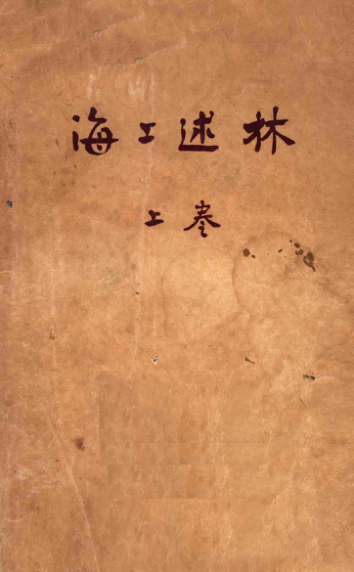 海上述林
上卷